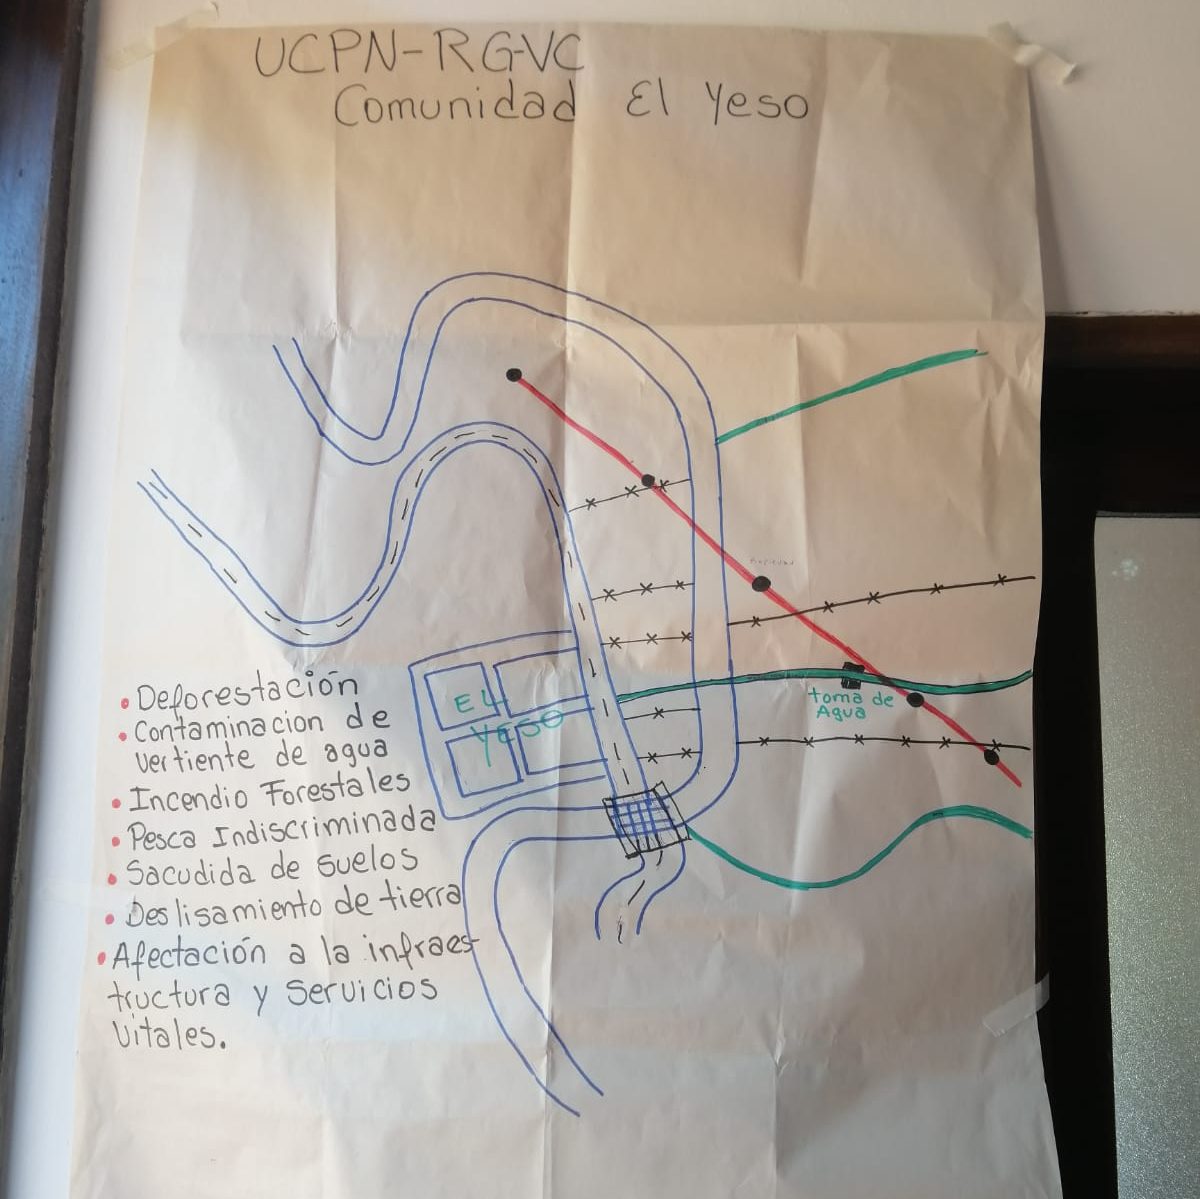 UCPN-RGVC
Comunidad El Yeso
toma de
Agua
EL
YESO
• Deforestación
• Contaminacion de
vertiente de agua
• Incendio Forestales
• Pesca Indiscriminada
• Sacudida de suelos
• Deslisamiento de tierra
• Afectación a la infraes-
tructura y Servicios
Vitales.